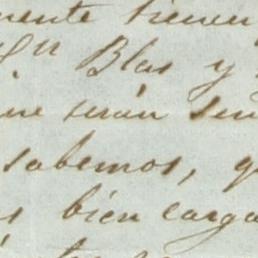 mente tienen
Sn Blas y
que serán sen
sabemos, q
s bien carga